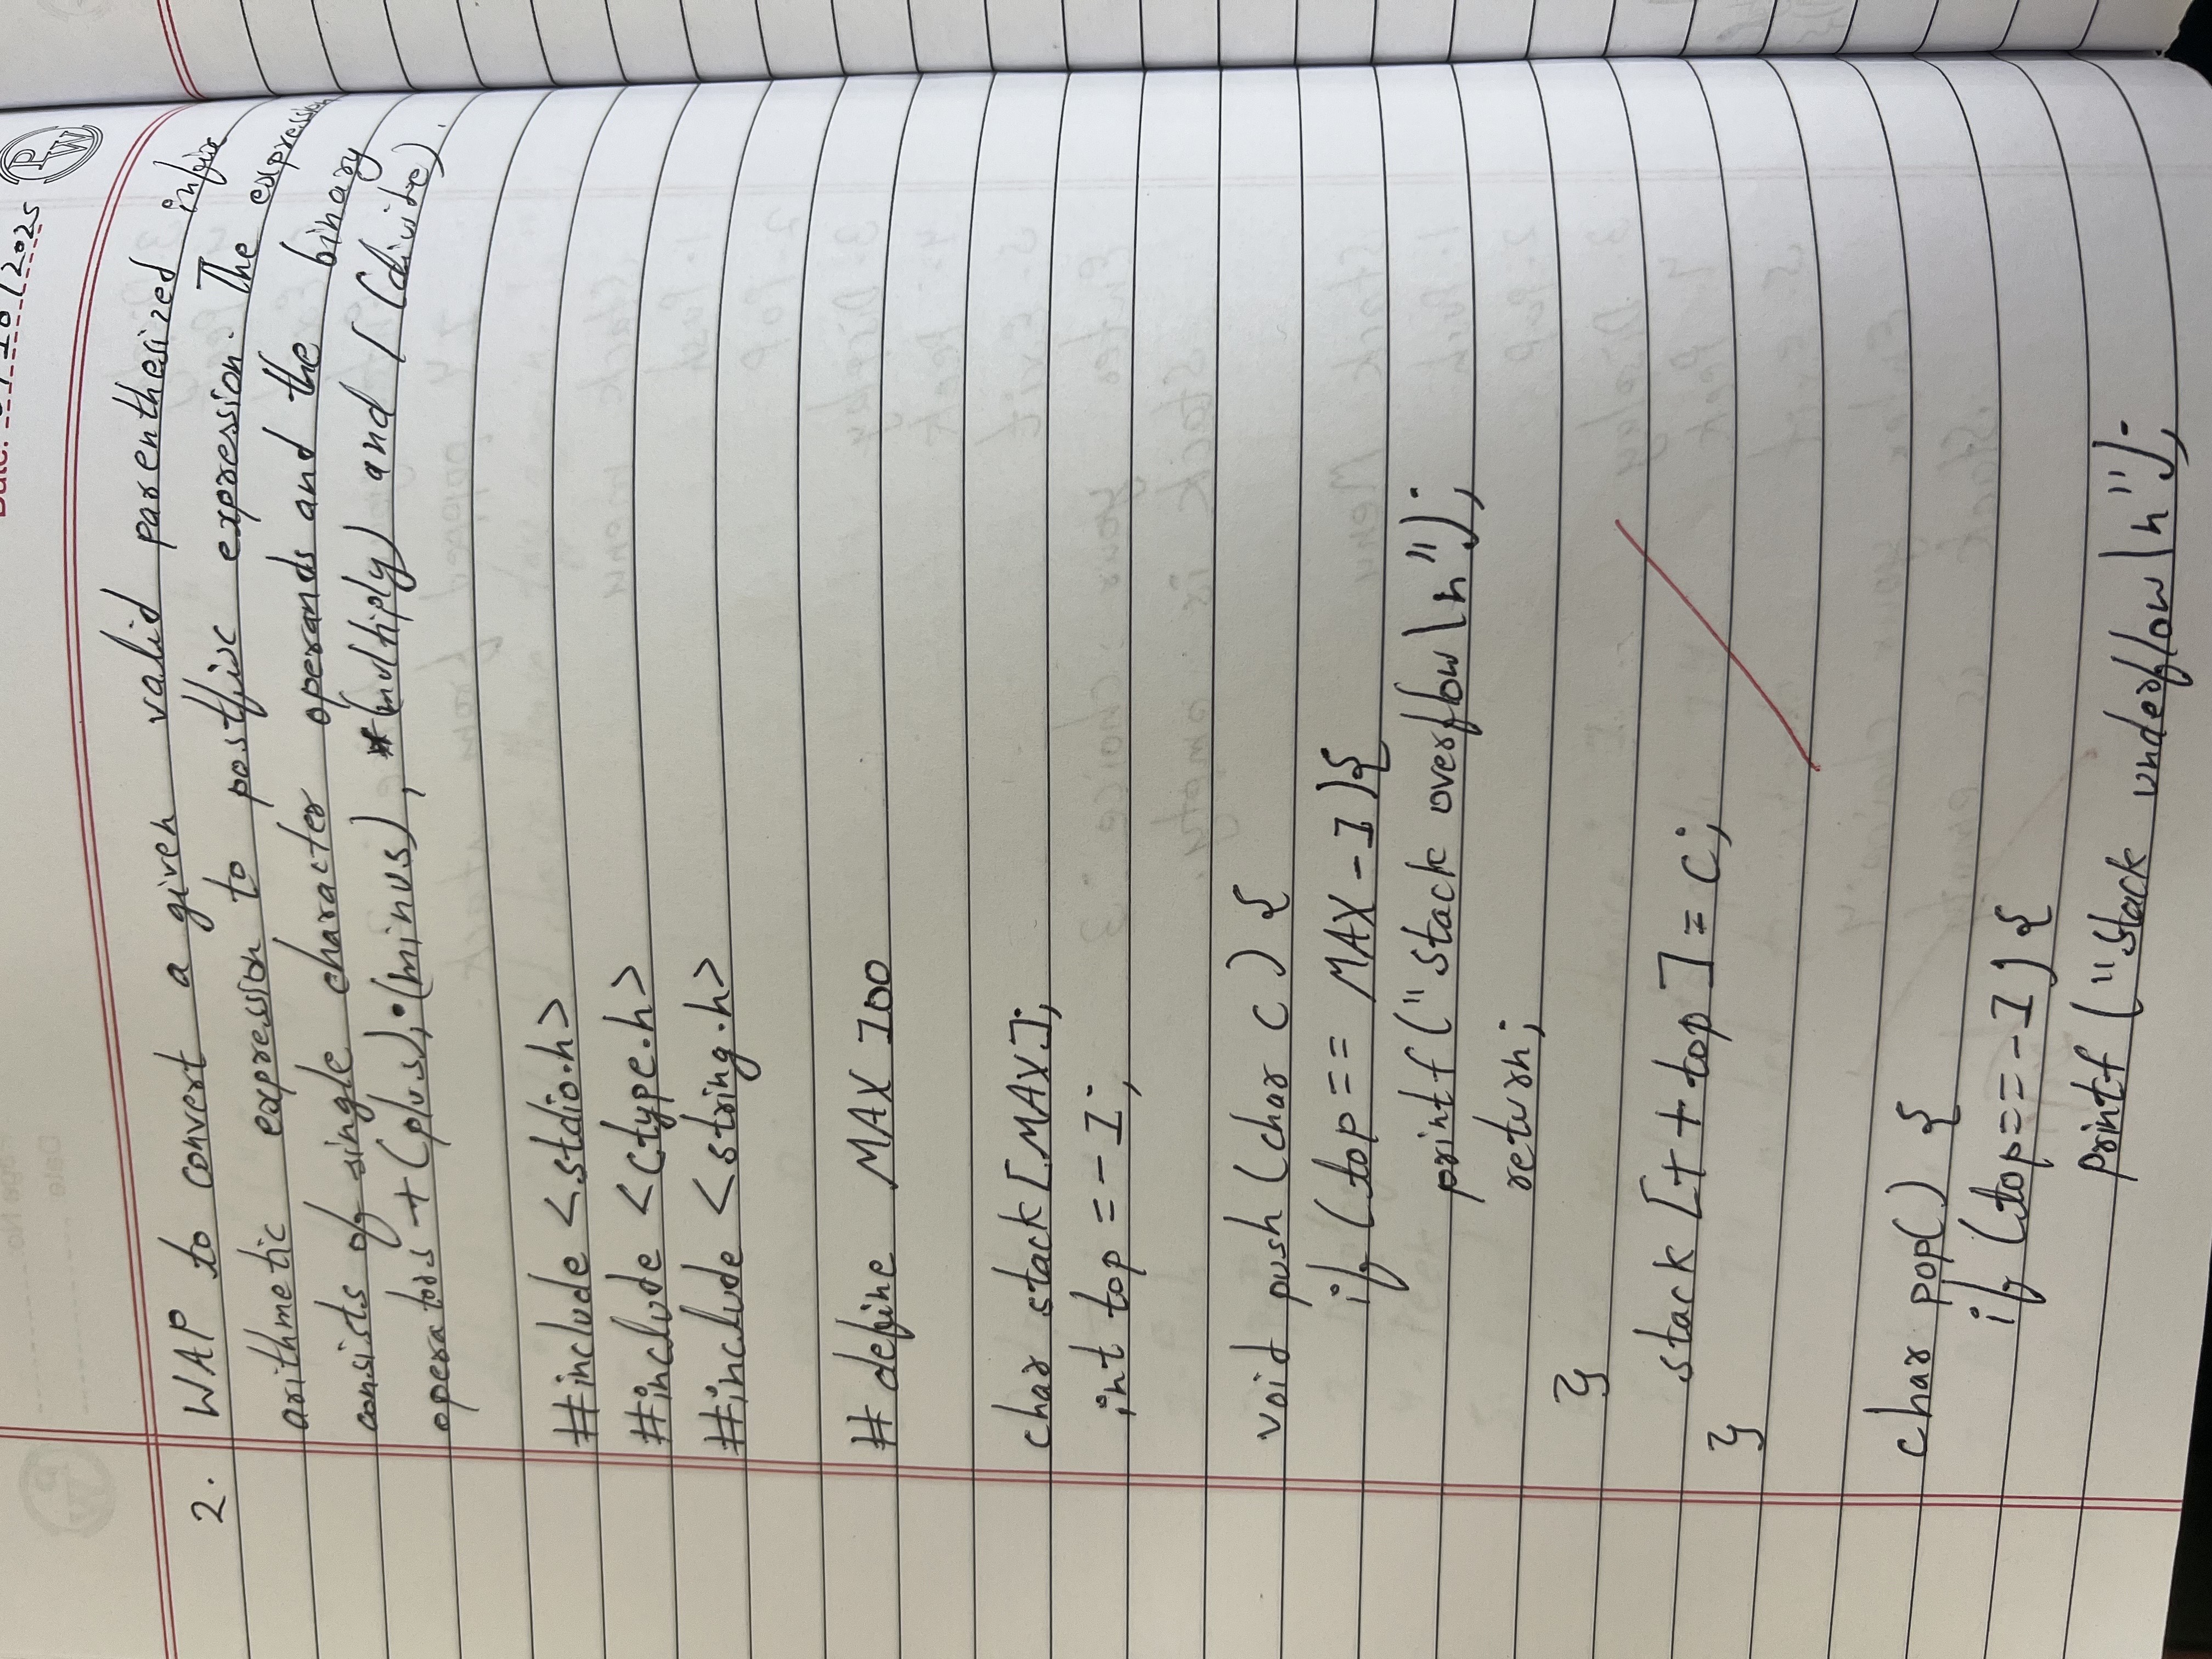 Date: /10/2025
PW
2. WAP to convert a given valid parenthesized infix
arithmetic expression to postfix expression. The expression
consists of single character operands and the binary
operators + (plus), - (minus), * (multiply) and / (divite).
#include <stdio.h>
#include <ctype.h>
#include <string.h>
# define MAX 100
char stack [MAX];
int top = -1;
void push (char c) {
if (top == MAX - 1){
printf ("Stack overflow\n");
return;
}
stack [++top] = c;
}
char pop() {
if (top == -1) {
printf ("Stack underflow\n");